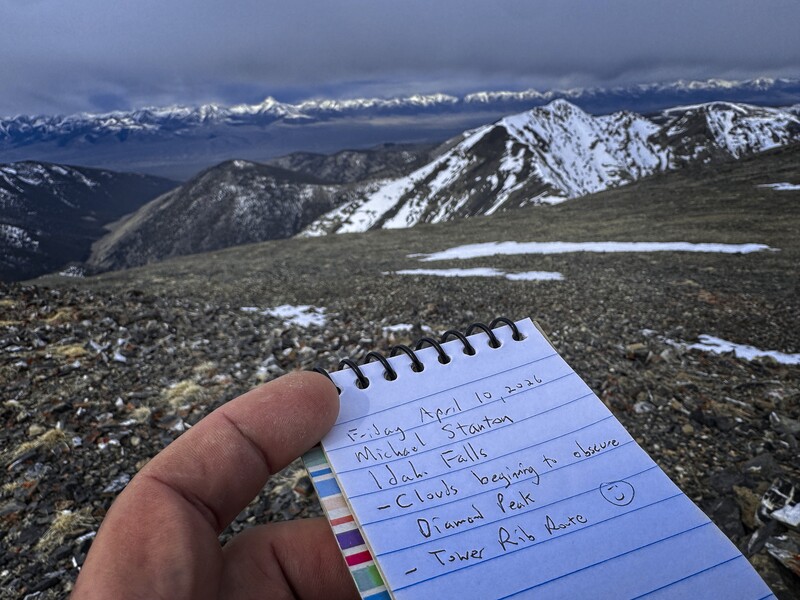 Friday April 10, 2026
Michael Stanton
Idah. Falls
- Clouds begining to obscure
Diamond Peak
- Tower Rib Route